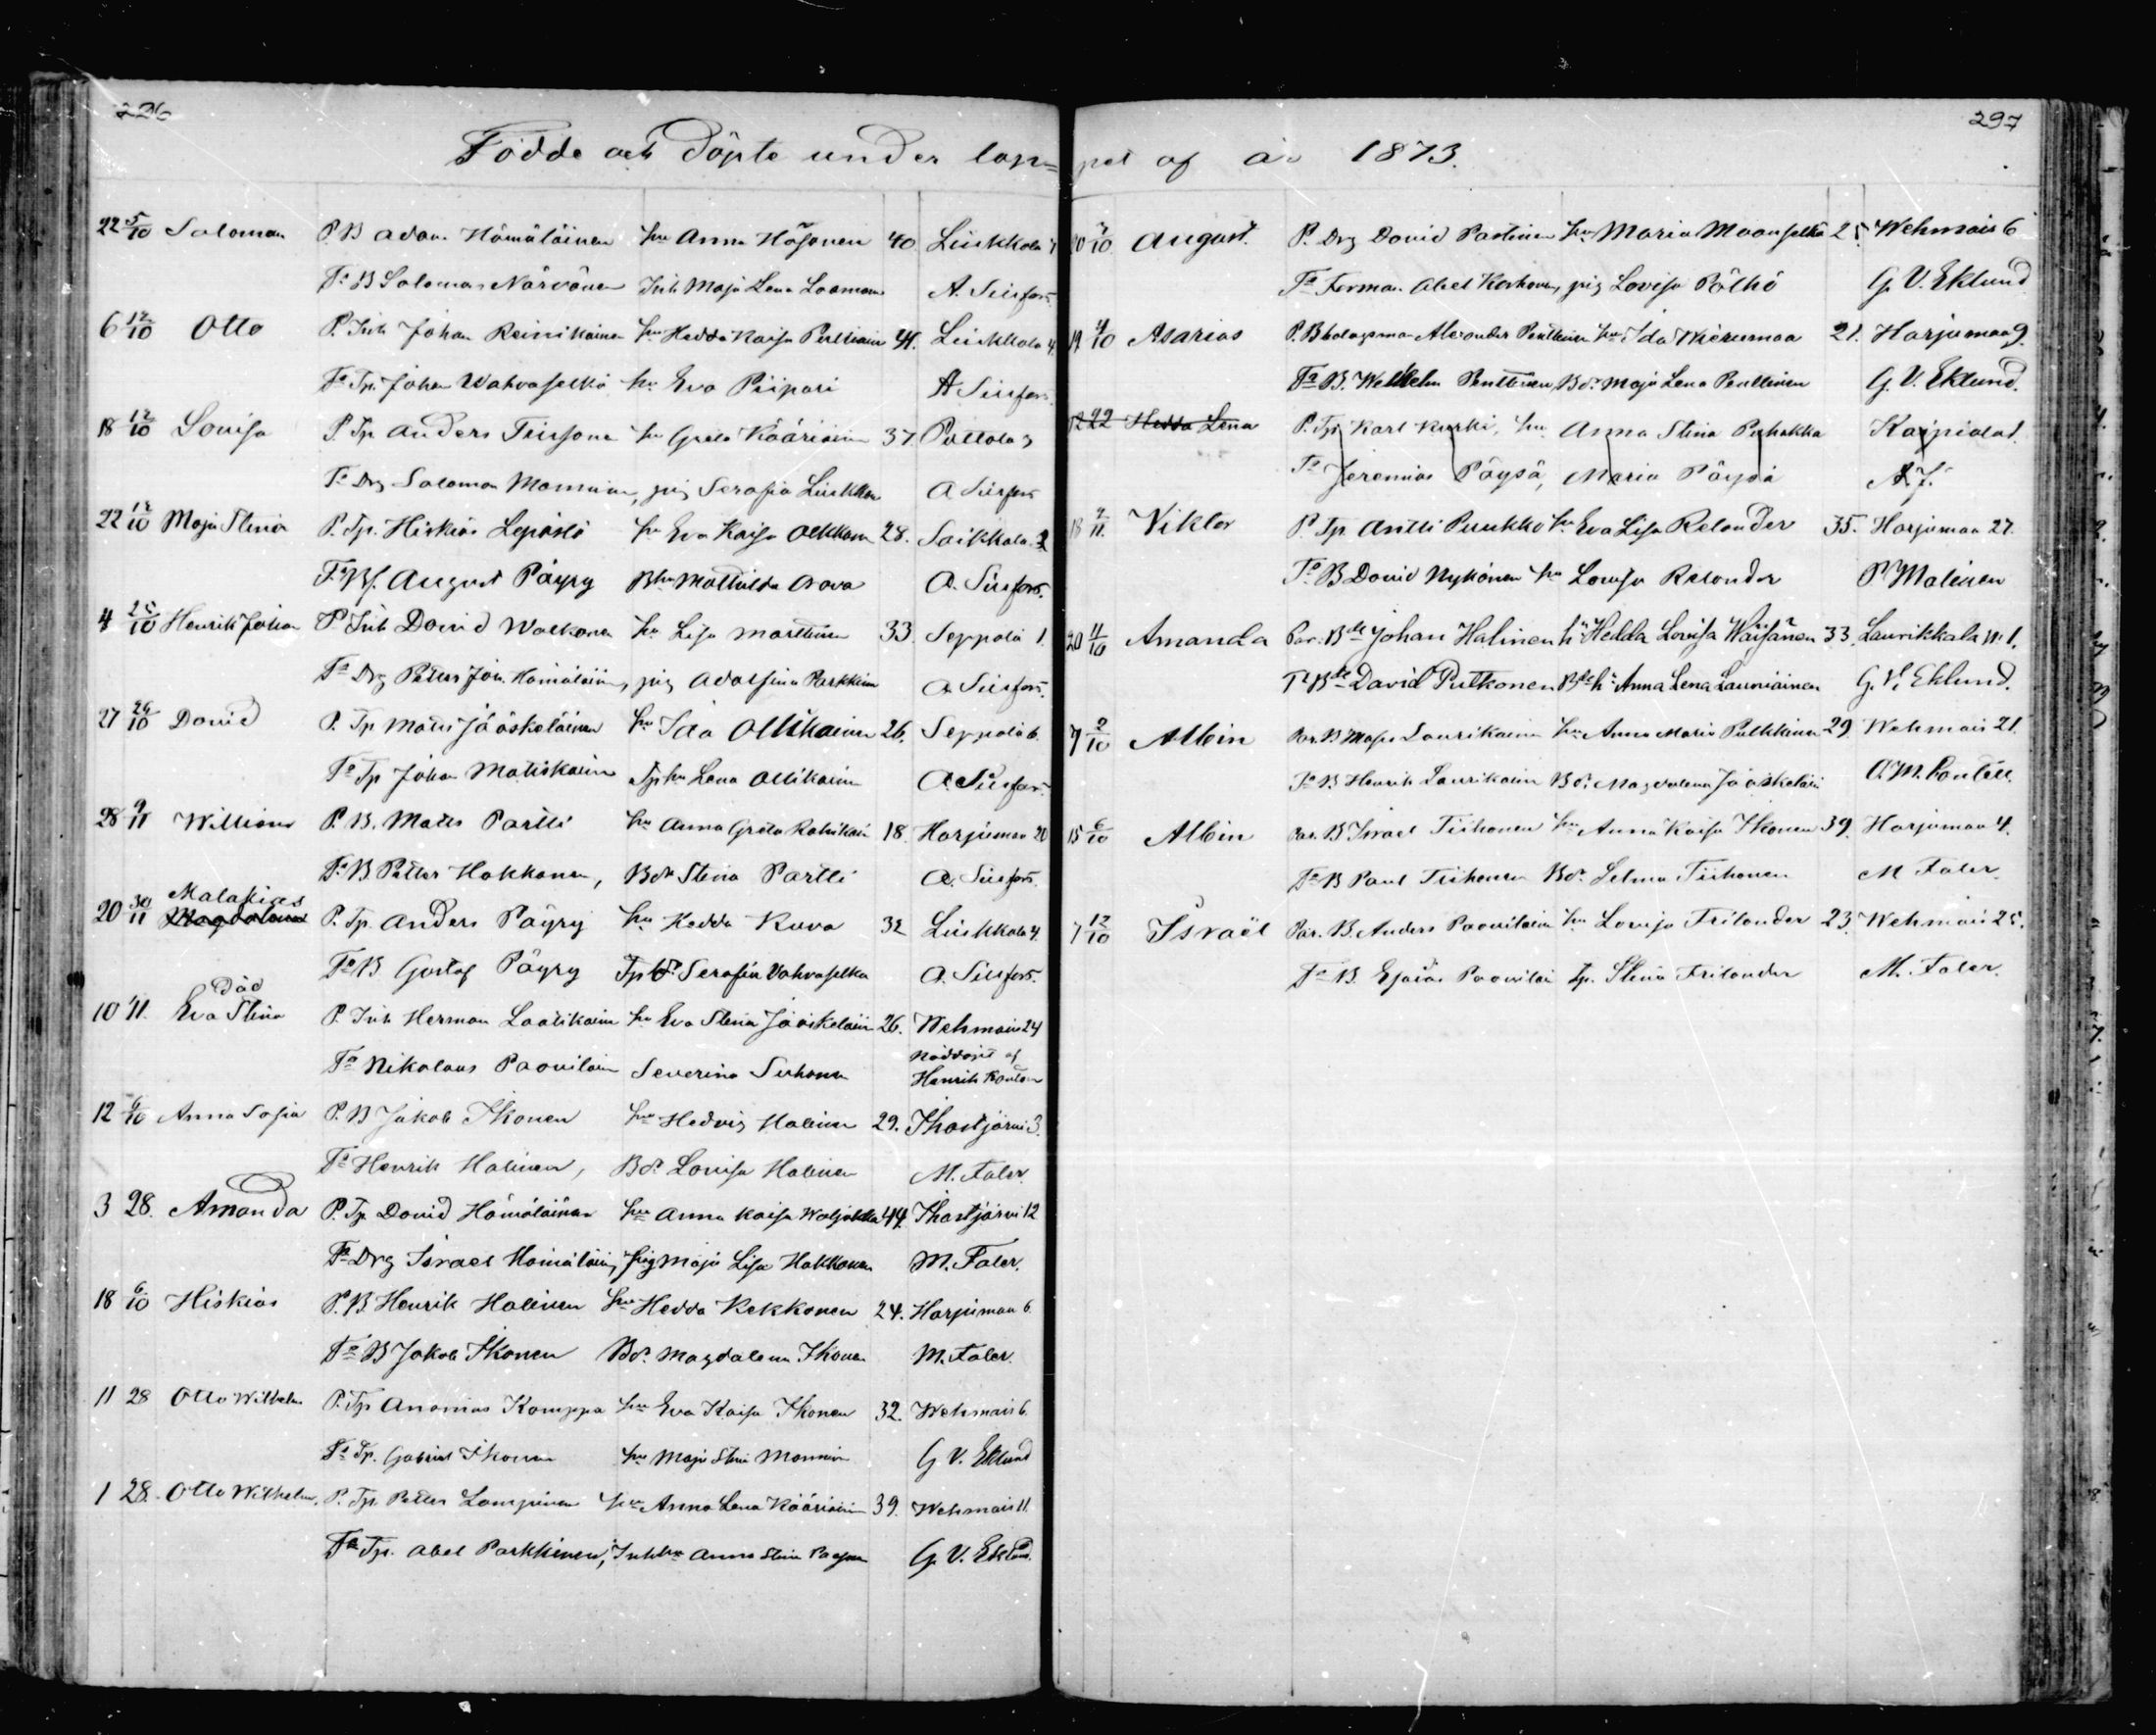 296
Födde och döpte under lop=
22 5/10 Salomon P. B Adam Hämäläinen hu Anna Häyhnen 40 Liikkala
Ts B Salomon Närvänen Inh Maja Lena Laamanen A. Siisfors
6 12/10 Otto P. Inh Johan Reinikainen hu Hedda Kaisa Perttiain 41. Liikkala 4.
Ts Tp. Johan Wahvaselkä hu Eva Piipari A Siisfors
18 12/10 Lovisa P. Tp Anders Teissonen hu Greta Kääriäin 37. Pottola 3
Ts Drg Salomon Monninen, pig Serafia Liikkanen A Siisfors
22 12/10 Maja Stina P. Tp. Hiskias Lepistö hu Eva Kaisa Olkkonen 28. Saikkala 2
Ts Bs. August Päyry Bhu Mathilda Orava A. Siisfors.
4 25/10 Henrik Johan P Inh David Walkonen hu Lisa Marttinen 33. Seppälä 1.
Ts Drg Petter Joh. Hämäläin, pig Adolfina Parkkinen A. Siisfors.
27 26/10 David P. Tp Matts Jääskeläinen hu Ida Ollikainen 26. Seppälä 6.
Ts Tp Johan Matiskainen Tphu Lena Ollikainen A. Siisfors.
28 9/11 William P. B. Matts Partti hu Anna Greta Rahikain 18. Harjumaa 20
Ts B Petter Hakkanen, Bdr Stina Partti A. Siisfors.
Malakias
20 30/11 Magdalena P. Tp. Anders Päyry hu Hedda Kuva 32 Liikkala 4.
Ts B Gustaf Päyry Tpdr Serafia Vahvaselkä A. Siisfors.
död
10 11. Eva Stina P. Inh Herman Laatikain hu Eva Stina Jääskeläin 26. Wehmais 24
Ts Nikolaus Paavilain Severina Suhonen Nöddöpt af
Henrik
12 6/10 Anna Sofia P. B Jakob Ikonen hu Hedvig Halinen 29. Ihastjärvi 3.
Ts Henrik Halinen, Bdr Lovisa Halinen M. Faler.
3 28. Amanda P. Tp. David Hämäläinen hu Anna Kaisa Waljakka 44. Ihastjärvi 12
Ts Drg Israel Hämäläin, pig Maja Lisa Hakkanen M. Faler.
18 6/10 Hiskias P. B Henrik Halinen hu Hedda Kekkonen 24. Harjumaa 6.
Ts B Jakob Ikonen Bdr. Magdalena Ikonen M. Faler.
11 28 Otto Wilhelm P. Tp Ananias Komppa hu Eva Kaisa Ikonen 32. Wehmais 6.
Ts Tp. Gabriel Ikonen hu Maja Stina Monninen G. V. Eklund
1 28. Otto Wilhelm. P. Tp. Petter Lampinen hu Anna Lena Kääriäin 39. Wehmais 11.
Ts Tp. Abel Parkkinen, Inhhu Anna Stina G. V. Eklund.
297
pet af år 1873.
20 7/10 August. P. Drg David Partinen hu Maria Maaniselkä 25. Wehmais 6
Ts Forman Abel Korhonen, pig Lovisa PöLhö G. V. Eklund
19 4/10 Asarias P. Bbolagsman Alexander Penttinen hu Ida Wierumaa 21. Harjumaa 9.
Ts B. Wellhelm Penttinen, Bdr. Maja Lena Penttinen G. V. Eklund.
12 22 Hedda Lena P. Tp Karl Kurki, hu Anna Stina Puhakka Karpiala 1.
Ts Jeremias Pöysä, Maria Pöysä A. S.
18 9/11. Viktor P. Tp. Antti Puukko hu Eva Lisa Relander 35. Harjumaa 27.
Ts B David Nykänen hu Lovisa Relander P Malinen
20 11/10 Amanda Par. Bde Johan Halinen hu Hedda Lovisa Wäisänen 33. Laurikkala No 1.
Ts Bde David Putkonen Bdeh: Anna Lena Launiainen G. V. Eklund.
7 2/10 Albin Par. B Moses Laurikainen hu Anna Maria Pulkkinen 29. Wehmais 21.
Ts B Henrik Laurikainen Bdr. Magdalena Jääskeläin A. M.
15 6/10 Albin Par. B Israel Tiihonen hu Anna Kaisa Ikonen 39. Harjumaa 4.
Ts B Paul Tiihonen Bdr. Selma Tiihonen M Faler.
7 12/10 Israël Par. B. Anders Paavilain hu Lovisa Frilander 23. Wehmais 25.
Ts B. Esaias Paavilain Tp. Stina Frilander M. Faler.